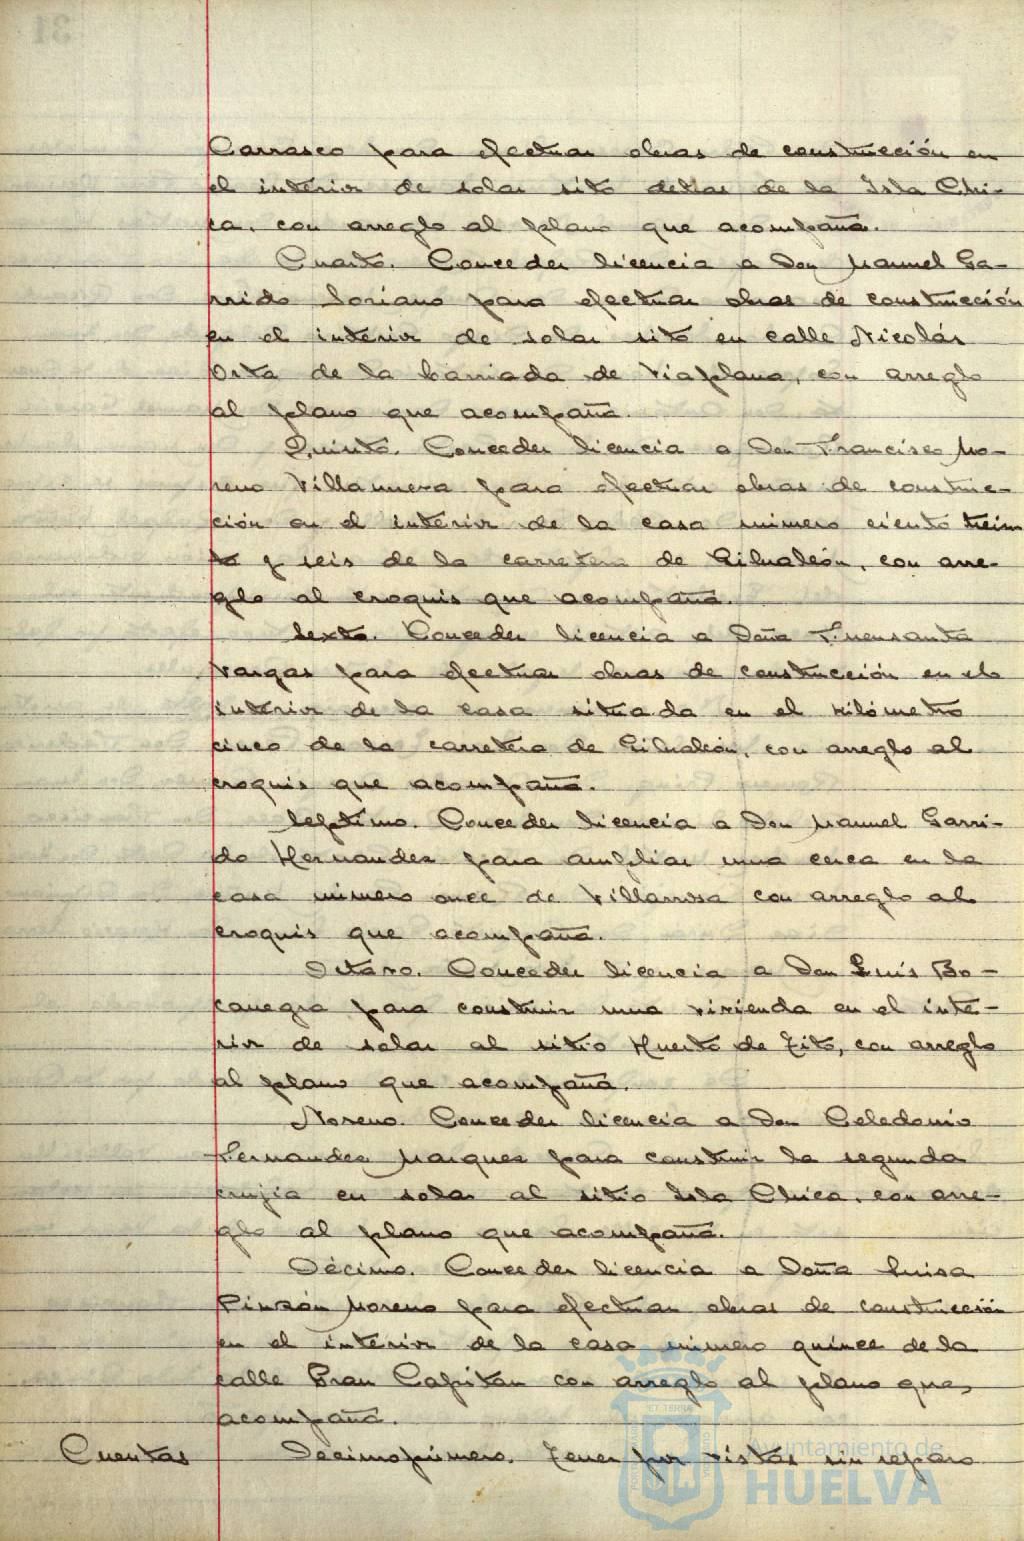 Carrasco para efectuar obras de construcción en
el interior de solar sito detras de la Isla Chi-
ca, con arreglo al plano que acompaña.
Cuarto. Conceder licencia a Don Manuel Ga-
rrido Soriano para efectuar obras de construcción
en el interior de solar sito en calle Nicolás
Orta de la barriada de Viaplana, con arreglo
al plano que acompaña.
Quinto. Conceder licencia a Don Francisco Mo-
reno Villanueva para efectuar obras de construc-
ción en el interior de la casa número ciento trein
ta y seis de la carretera de Gibraleón, con arre-
glo al croquis que acompaña.
Sexto. Conceder licencia a Doña Fuensanta
Vargas para efectuar obras de construcción en el
interior de la casa situada en el kilómetro
cinco de la carretera de Gibraleón, con arreglo al
croquis que acompaña.
Septimo. Conceder licencia a Don Manuel Garri-
do Hernandez para ampliar una cerca en la
casa número once de Villarrosa con arreglo al
croquis que acompaña.
Octavo. Conceder licencia a Don Luis Bo-
canegra para construir una vivienda en el inte-
rior de solar al sitio Huerto de Tito, con arreglo
al plano que acompaña.
Noveno. Conceder licencia a Don Celedonio
Fernandez Marquez para construir la segunda
crujía en solar al sitio Isla Chica, con arre-
glo al plano que acompaña.
Décimo. Conceder licencia a Doña Luisa
Pinzón Moreno para efectuar obras de construcción
en el interior de la casa número quince de la
calle Gran Capitan con arreglo al plano que
acompaña.
Cuentas Decimoprimero. Tener por vistas sin reparo
Ayuntamiento de
HUELVA